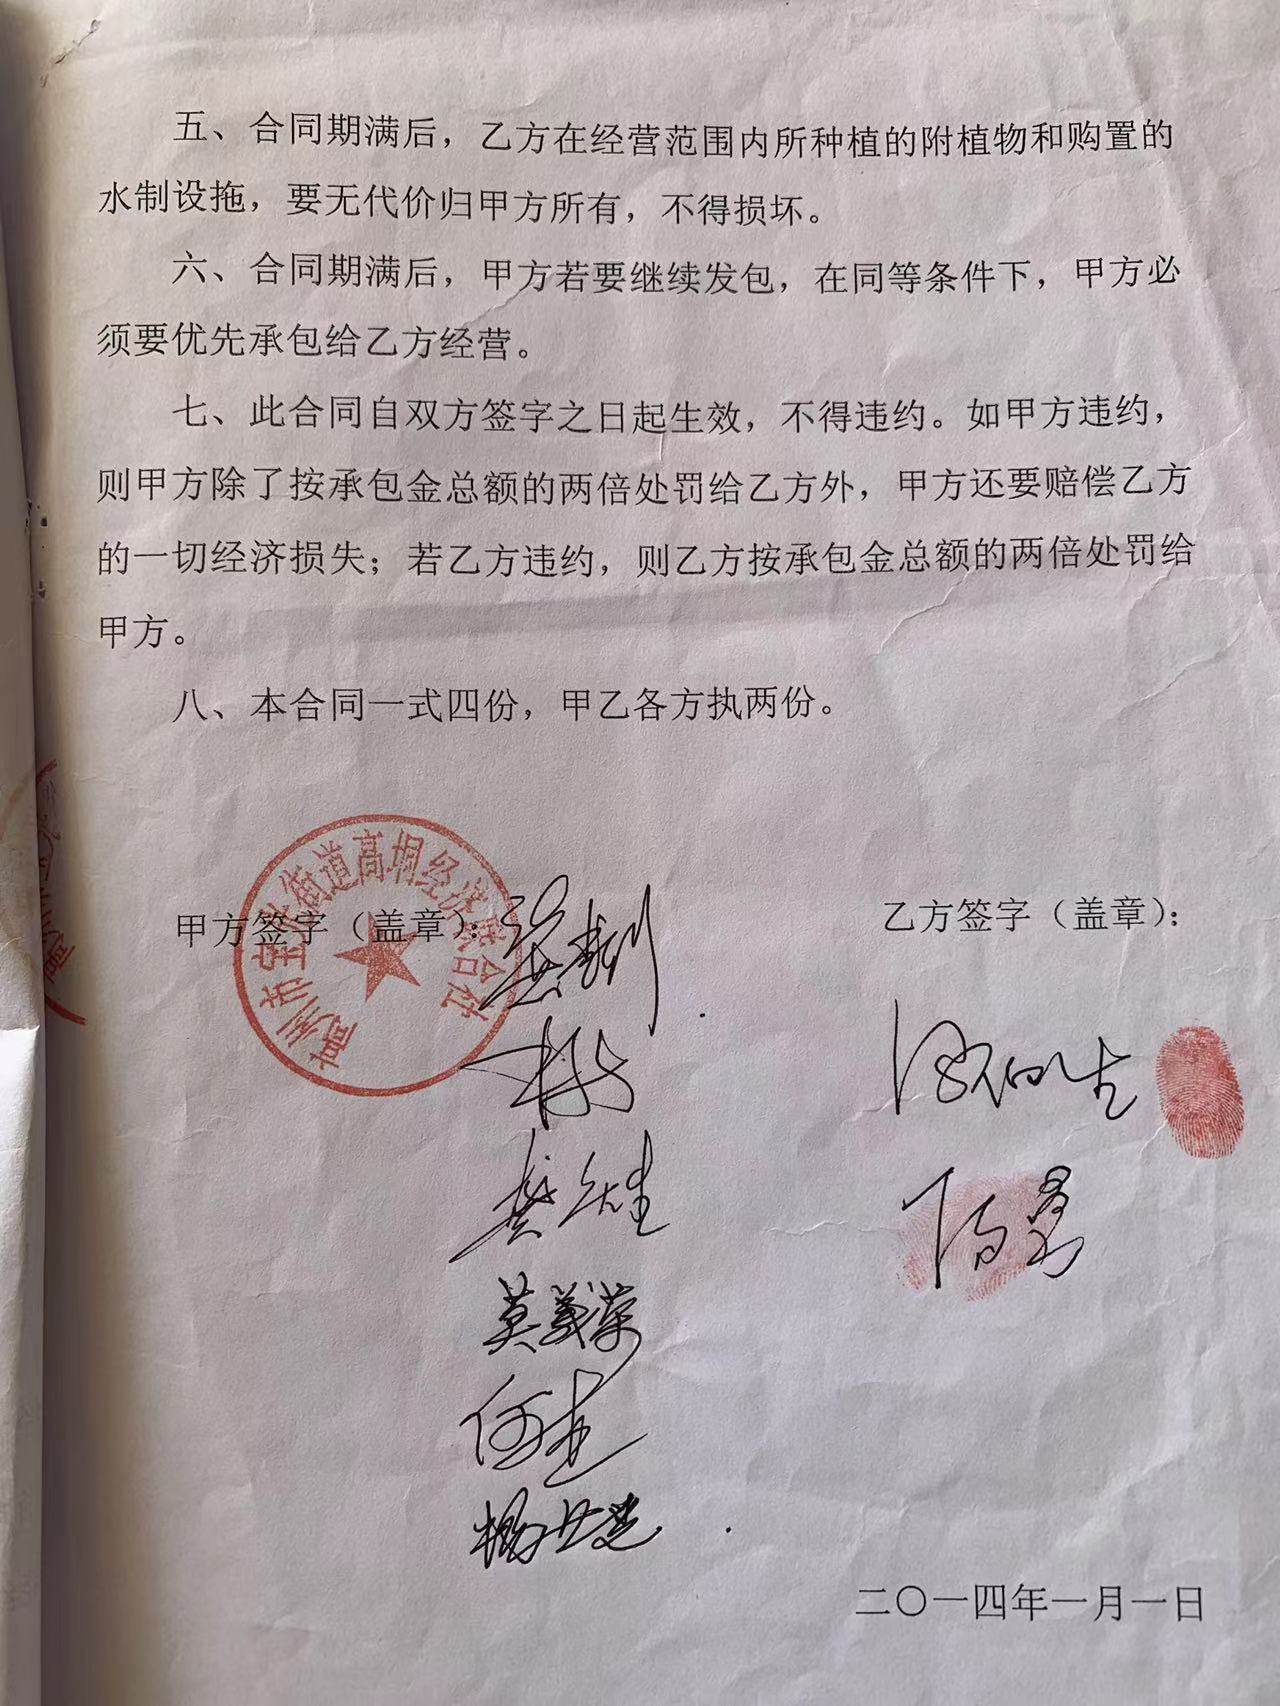 五、合同期满后，乙方在经营范围内所种植的附植物和购置的
水制设拖，要无代价归甲方所有，不得损坏。
六、合同期满后，甲方若要继续发包，在同等条件下，甲方必
须要优先承包给乙方经营。
七、此合同自双方签字之日起生效，不得违约。如甲方违约，
则甲方除了按承包金总额的两倍处罚给乙方外，甲方还要赔偿乙方
的一切经济损失；若乙方违约，则乙方按承包金总额的两倍处罚给
甲方。
八、本合同一式四份，甲乙各方执两份。
甲方签字（盖章）：
高州市宝光街道高垌经济联合社
乙方签字（盖章）：
莫义荣
二〇一四年一月一日